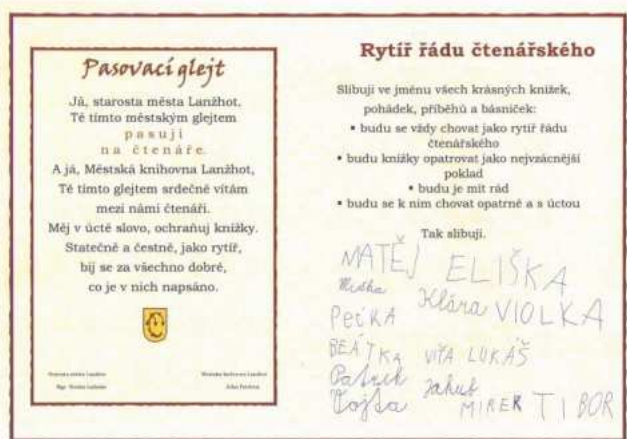 Pasovací glejt
Já, starosta města Lanžhot,
Tě tímto městským glejtem
pasuji
na čtenáře.
A já, Městská knihovna Lanžhot,
Tě tímto glejtem srdečně vítám
mezi námi čtenáři.
Měj v úctě slovo, ochraňuj knížky.
Statečně a čestně, jako rytíř,
bij se za všechno dobré,
co je v nich napsáno.
Starosta města Lanžhot
Městská knihovna Lanžhot
Rytíř řádu čtenářského
Slibuji ve jménu všech krásných knížek,
pohádek, příběhů a básniček:
▪ budu se vždy chovat jako rytíř řádu
čtenářského
▪ budu knížky opatrovat jako nejvzácnější
poklad
▪ budu je mít rád
▪ budu se k nim chovat opatrně a s úctou
Tak slibuji.
MATĚJ ELIŠKA
Miška Klára VIOLKA
PEŤKA
BEÁTKA VÍŤA LUKÁŠ
Patrik Jakub
Vojta MIREK TIBOR